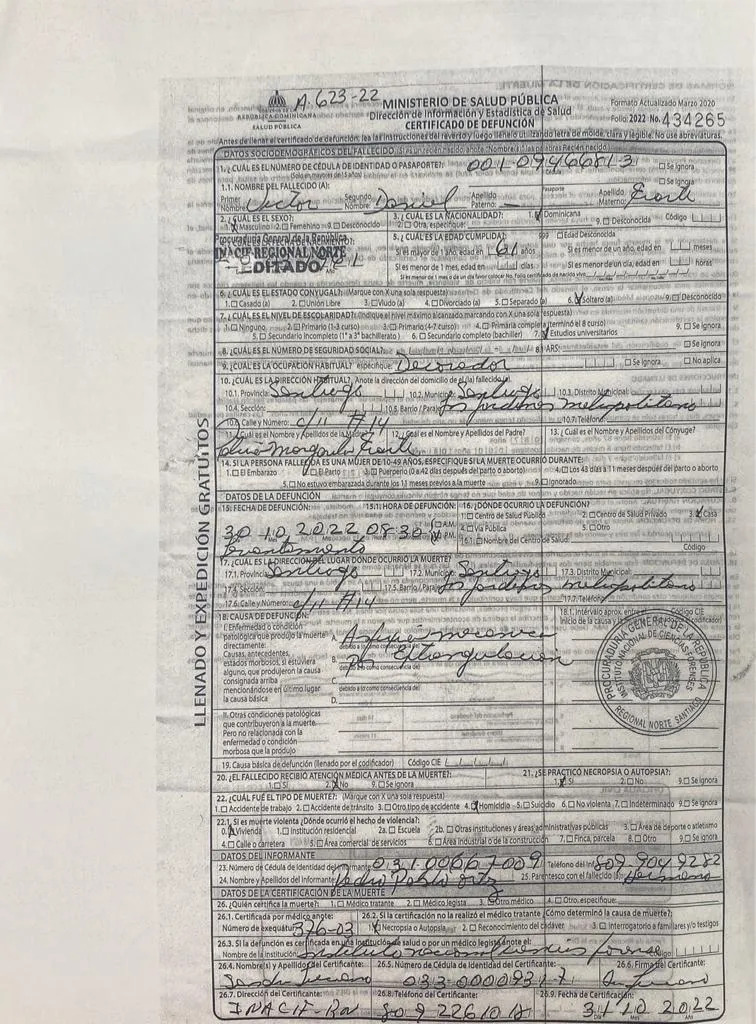 A-623-22
REPÚBLICA DOMINICANA
SALUD PÚBLICA
MINISTERIO DE SALUD PÚBLICA
Dirección de Información y Estadística de Salud
CERTIFICADO DE DEFUNCIÓN
Formato Actualizado Marzo 2020
Folio: 2022 No. 434265
Antes de llenar el certificado de defunción: lea las instrucciones del reverso y luego llénelo utilizando letra de molde, clara y legible. No use abreviaturas.
DATOS SOCIODEMOGRÁFICOS DEL FALLECIDO
1. ¿CUÁL ES EL NÚMERO DE CÉDULA DE IDENTIDAD O PASAPORTE? 00107466813 Se ignora
(Solo en mayores de 16 años) Cédula Pasaporte
1.1. NOMBRE DEL FALLECIDO (A): Se ignora
Primer Nombre Victor Segundo Nombre Daniel Apellido Paterno Apellido Materno
2. ¿CUÁL ES EL SEXO?
1. Masculino 2. Femenino 9. Desconocido
3. ¿CUÁL ES LA NACIONALIDAD? 1. Dominicana
2. Otra, especifique: 9. Desconocida Código
Procuraduría General de la República
INACIF-REGIONAL NORTE
EDITADO
5. ¿CUÁL ES LA EDAD CUMPLIDA? 999 Edad Desconocida
Si es mayor de 1 año, edad en 61 años Si es menor de un año, edad en meses
Si es menor de 1 mes, edad en días Si es menor de un día, edad en horas
6. ¿CUÁL ES EL ESTADO CONYUGAL? (Marque con X una sola respuesta)
1. Casado (a) 2. Unión Libre 3. Viudo (a) 4. Divorciado (a) 5. Separado (a) 6. Soltero (a) 9. Desconocido
7. ¿CUÁL ES EL NIVEL DE ESCOLARIDAD? (Indique el nivel máximo alcanzado marcando con X una sola respuesta)
1. Ninguno 2. Primario (1-3 curso) 3. Primario (4-7 curso) 4. Primaria completa (terminó el 8 curso) 9. Se ignora
5. Secundario Incompleto (1° a 3° bachillerato) 6. Secundario completo (bachiller) 7. Estudios universitarios
8. ¿CUÁL ES EL NÚMERO DE SEGURIDAD SOCIAL? 8.1 ARS: Se ignora
9. ¿CUÁL ES LA OCUPACIÓN HABITUAL? especifique: Decorador Se ignora No aplica
10. ¿CUÁL ES LA DIRECCIÓN HABITUAL? Anote la dirección del domicilio de el (la) fallecido (a).
10.1. Provincia Santiago 10.2. Municipio Santiago 10.3. Distrito Municipal:
10.4. Sección: 10.5. Barrio / Paraje Los jardines metropolitano
10.6. Calle y Número: c/11 #14 10.7. Teléfono:
11. ¿Cuál es el Nombre y Apellidos de la Madre? 12. ¿Cuál es el Nombre y Apellidos del Padre? 13. ¿Cuál es el Nombre y Apellidos del Cónyuge?
14. SI LA PERSONA FALLECIDA ES UNA MUJER DE 10-49 AÑOS, ESPECIFIQUE SI LA MUERTE OCURRIÓ DURANTE:
1. El Embarazo 2. El Parto 3. Puerperio (0 a 42 días después del parto o aborto) 4. Los 43 días a 11 meses después del parto o aborto
5. No estuvo embarazada durante los 11 meses previos a la muerte 9. Ignorado
DATOS DE LA DEFUNCIÓN
15. FECHA DE DEFUNCIÓN: 15.1. HORA DE DEFUNCIÓN: 16. ¿DÓNDE OCURRIÓ LA DEFUNCIÓN?
1. Centro de Salud Público 2. Centro de Salud Privado 3. Casa
30 10 2022 08:30 A.M. P.M. 4. Vía Pública 5. Otro
16.1. Nombre del Centro de Salud: Código
17. ¿CUÁL ES LA DIRECCIÓN DEL LUGAR DONDE OCURRIÓ LA MUERTE?
17.1. Provincia Santiago 17.2. Municipio Santiago 17.3. Distrito Municipal:
17.4. Sección: 17.5. Barrio / Paraje Los jardines metropolitano
17.6. Calle y Número: c/11 #14 17.7. Teléfono:
18. CAUSA DE DEFUNCIÓN: 18.1. Intervalo aprox. entre el Inicio de la causa y Código CIE
I. Enfermedad o condición patológica que produjo la muerte directamente: A. Asfixia mecanica
debido a (o como consecuencia de)
Causas, antecedentes, estados morbosos, si estuviera alguno, que produjeron la causa consignada arriba mencionándose en último lugar la causa básica
B. por Estrangulacion
debido a (o como consecuencia de)
C.
debido a (o como consecuencia de)
D.
PROCURADURÍA GENERAL DE LA REPÚBLICA
INSTITUTO NACIONAL DE CIENCIAS FORENSES
REGIONAL NORTE SANTIAGO
II. Otras condiciones patológicas que contribuyeron a la muerte. Pero no relacionada con la enfermedad o condición morbosa que la produjo
19. Causa básica de defunción (llenado por el codificador) Código CIE
20. ¿EL FALLECIDO RECIBIÓ ATENCIÓN MÉDICA ANTES DE LA MUERTE?: 21. ¿SE PRACTICÓ NECROPSIA O AUTOPSIA?:
1. Sí 2. No 9. Se ignora 1. Sí 2. No 9. Se ignora
22. ¿CUÁL FUE EL TIPO DE MUERTE? (Marque con X una sola respuesta)
1. Accidente de trabajo 2. Accidente de tránsito 3. Otro tipo de accidente 4. Homicidio 5. Suicidio 6. No violenta 7. Indeterminado 9. Se ignora
22.1. Si es muerte violenta ¿Dónde ocurrió el hecho de violencia?:
0. Vivienda 1. Institución residencial 2a. Escuela 2b. Otras instituciones y áreas administrativas públicas 3. Área de deporte o atletismo
4. Calle o carretera 5. Área comercial o de servicios 6. Área industrial o de la construcción 7. Finca, parcela 8. Otro 9. Se ignora
DATOS DEL INFORMANTE
23. Número de Cédula de Identidad del Informante Teléfono del Inf. 809 904 9282
24. Nombre y Apellidos del Informante: Pedro Pablo Ortiz 25. Parentesco con el fallecido (a): Hermano
DATOS DE LA CERTIFICACIÓN DE LA MUERTE
26. ¿Quién certifica la muerte?: 1. Médico tratante 2. Médico legista 3. Otro médico 4. Otro, especifique:
26.1. Certificada por médico anote: 26.2. Si la certificación no la realizó el médico tratante ¿Cómo determinó la causa de muerte?:
Número de exequátur 376-03 1. Necropsia o Autopsia 2. Reconocimiento del cadáver 3. Interrogatorio a familiares y/o testigos
26.3. Si la defunción es certificada en una institución de salud o por un médico legista anote el:
Nombre de la Institución Código
26.4. Nombre(s) y Apellido del Certificante: 26.5. Número de Cédula de Identidad del Certificante: 26.6. Firma del Certificante:
26.7. Dirección del Certificante: 26.8. Teléfono del Certificante: 26.9. Fecha de Certificación:
INACIF-RN 31 10 2022
LLENADO Y EXPEDICIÓN GRATUITOS